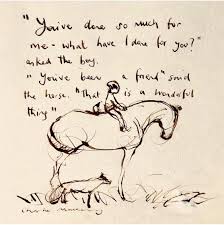 "You've done so much for
me - what have I done for you?"
asked the boy.
"You've been a friend" said
the horse. "That is a wonderful
thing"
Charlie Mackesy